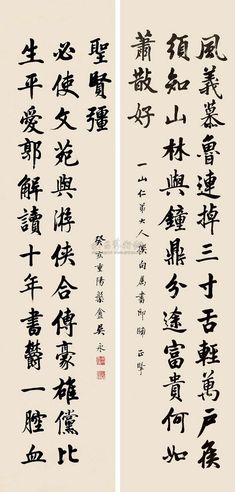 風義慕魯連掉三寸舌輕萬戶侯
須知山林與鐘鼎分途富貴何如
蕭散好
一山仁弟大人撰句屬書即 正
生平愛郭解讀十年書鬱一腔血
必使文苑與游俠合傳豪雄儻比
聖賢彊
癸亥重陽槃盦吳永